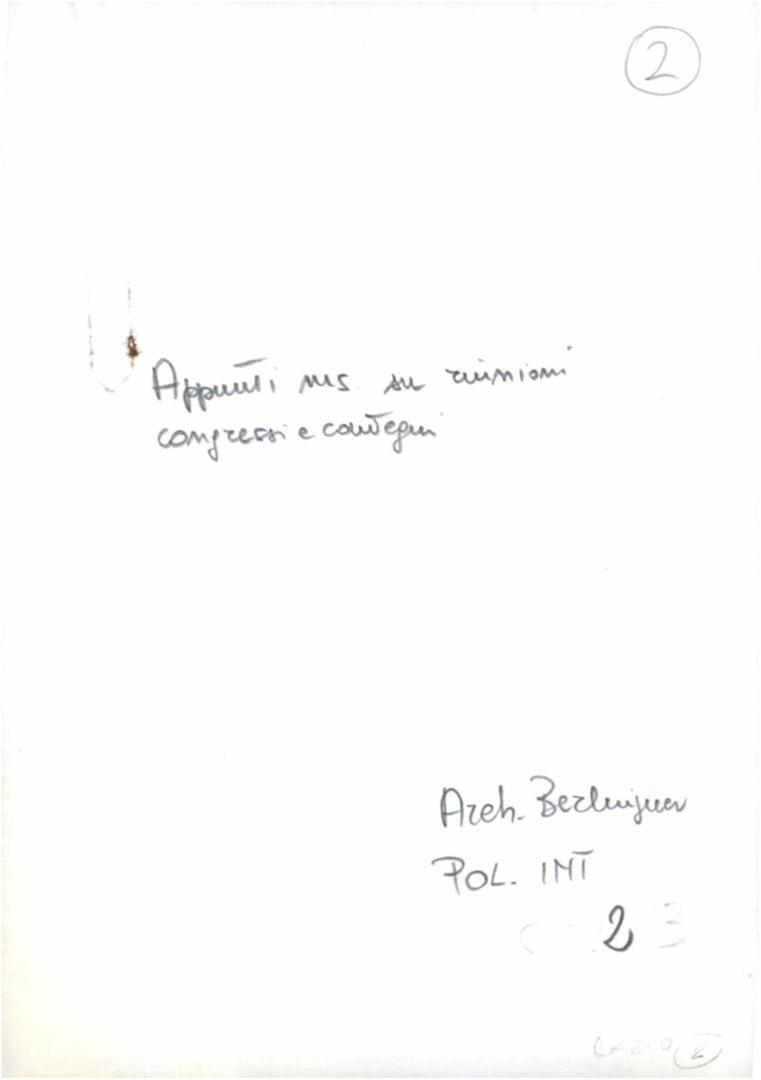 2
Appunti ms. su riunioni
congressi e convegni
Arch. Berlinguer
POL. INT
2 3
LAZIO 2